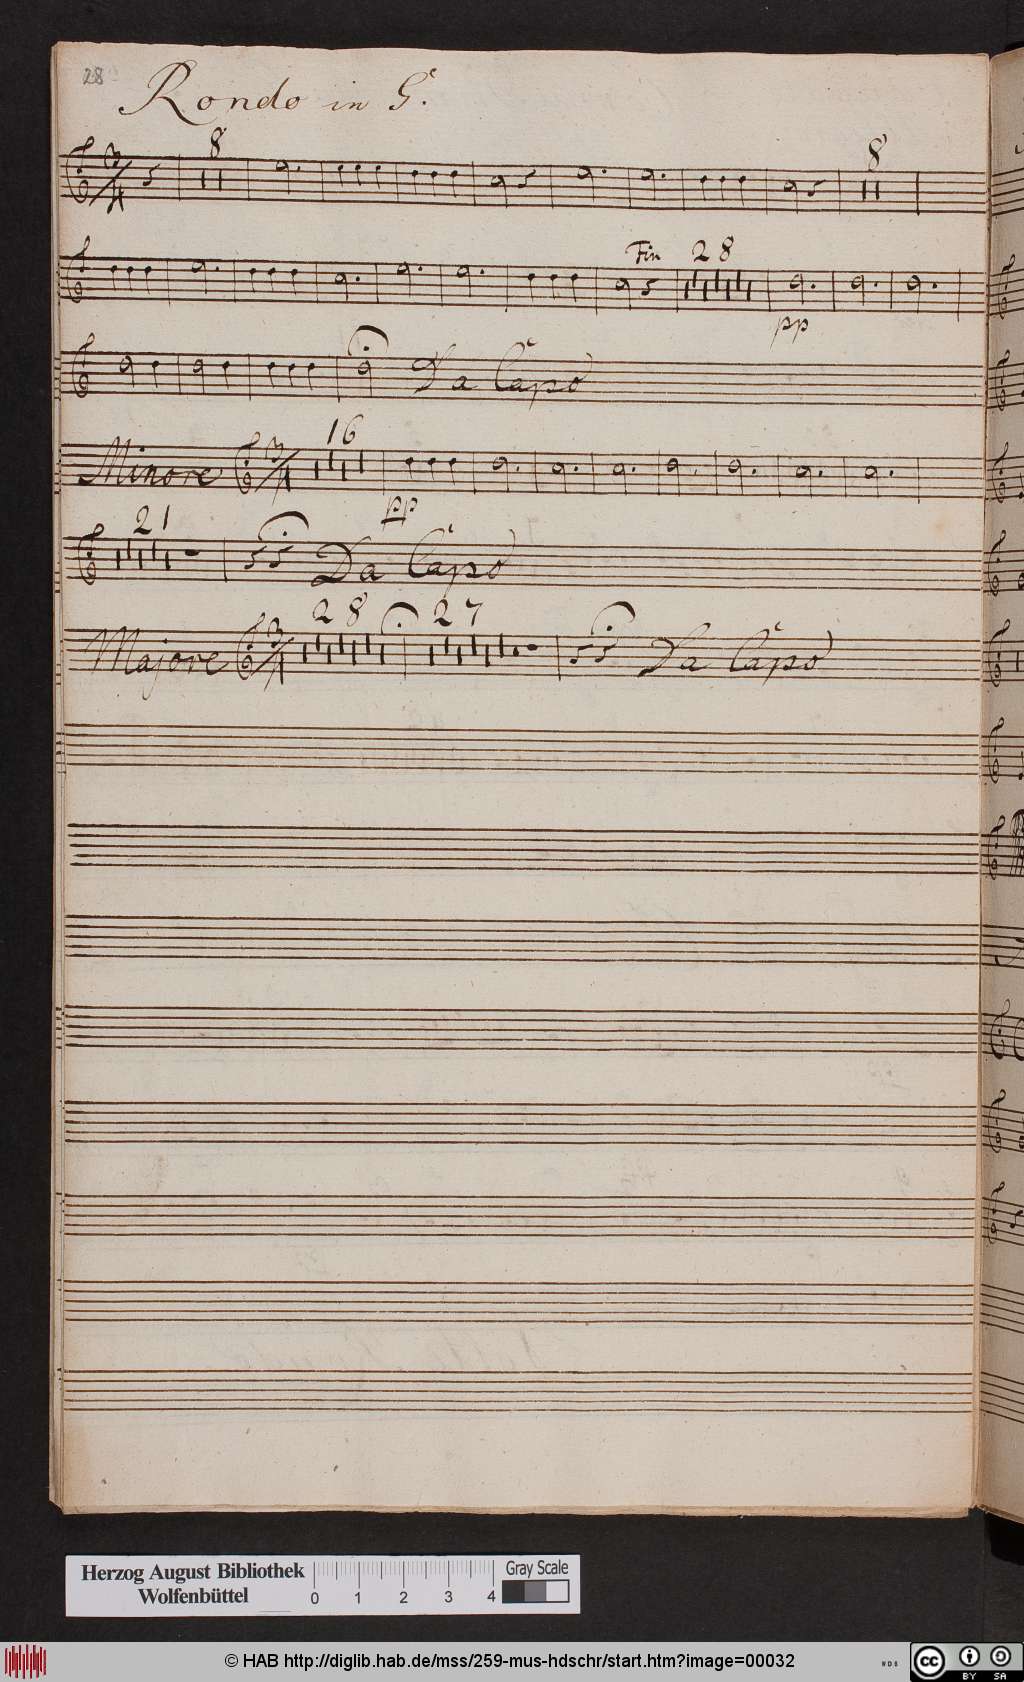 28
Rondo in G.
3/4 8 8
Fin 28
pp
Da Capo
Minore 3/4 16
pp
21 Da Capo
Majore 3/4 28 27 Da Capo
Herzog August Bibliothek
Wolfenbüttel
0 1 2 3 4
Gray Scale
© HAB http://diglib.hab.de/mss/259-mus-hdschr/start.htm?image=00032
WDB
cc BY SA